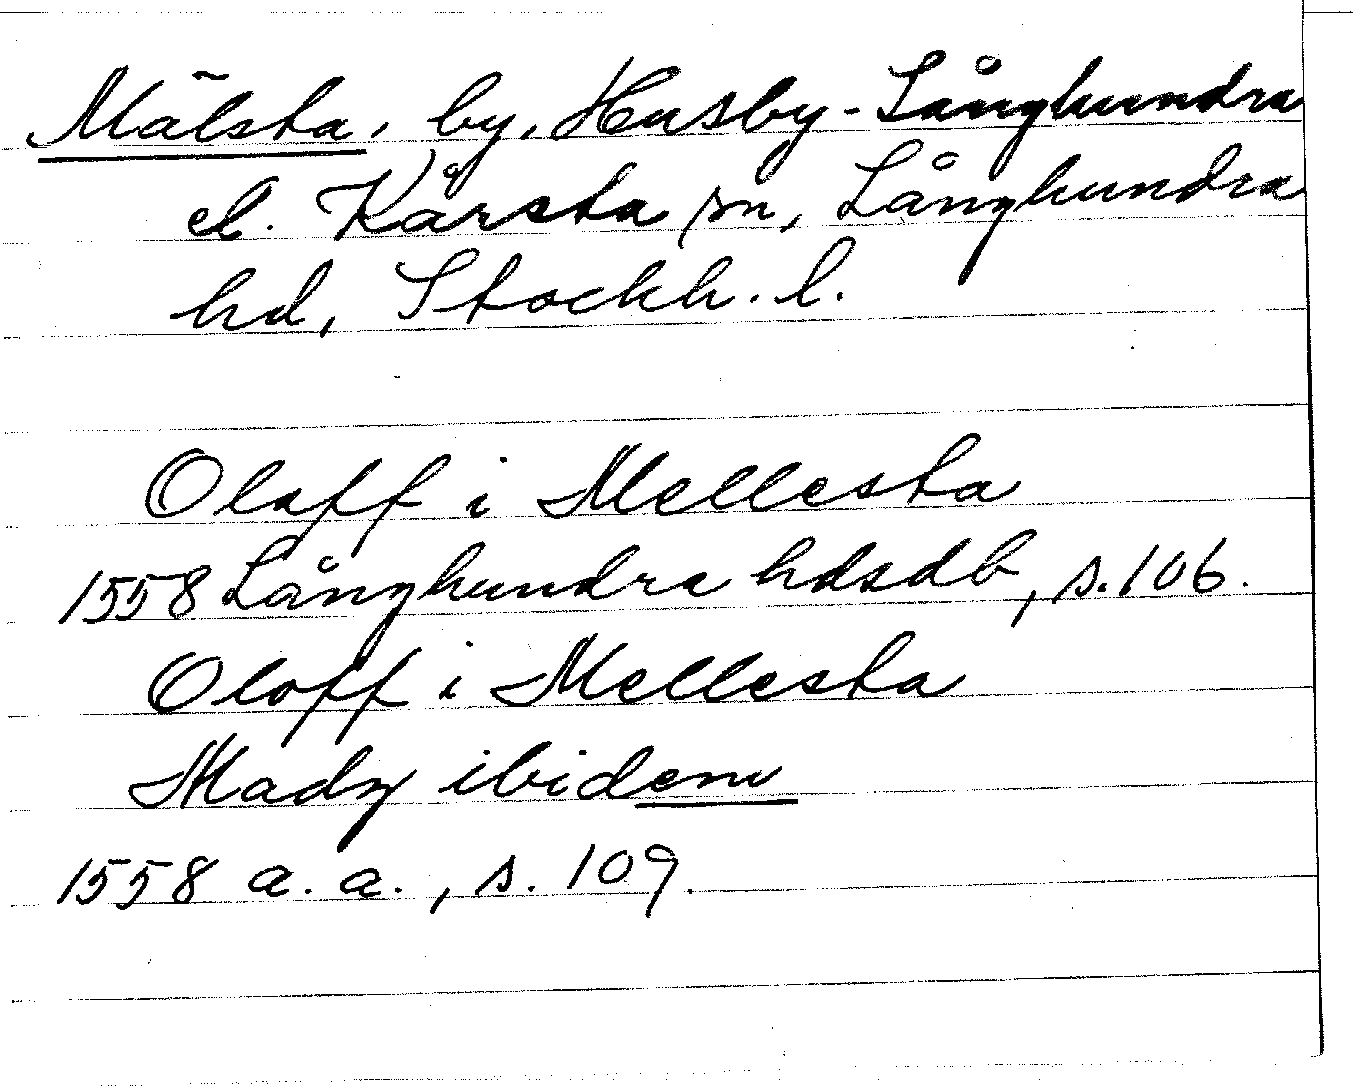 Mälsta, by, Husby-Långhundra
el. Kårsta sn, Långhundra
hd, Stockh. l.
Olaff i Mellesta
1558 Långhundra hdsdb, s. 106.
Oloff i Mellesta
Madz ibidem
1558 a. a., s. 109.